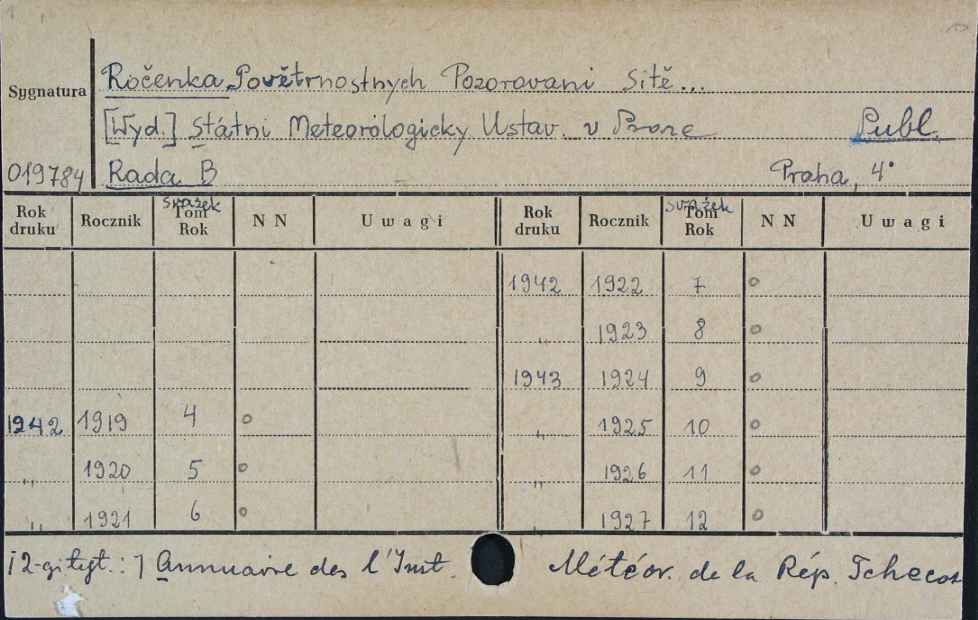 Ročenka Povětrnostnych Pozorovani Sitě...
Sygnatura
[Wyd.] Státni Meteorologicky Ustav. v Praze Publ.
019784 Rada B Praha, 4°
Rok druku Rocznik svazek Tom Rok N N Uwagi Rok druku Rocznik svazek Tom Rok N N Uwagi
1942 1922 7 o
„ 1923 8 o
1943 1924 9 o
1942 1919 4 o „ 1925 10 o
„ 1920 5 o „ 1926 11 o
„ 1921 6 o 1927 12 o
[2-gi tyt.:] Annuaire des l'Inst. Météor. de la Rép. Tchecos